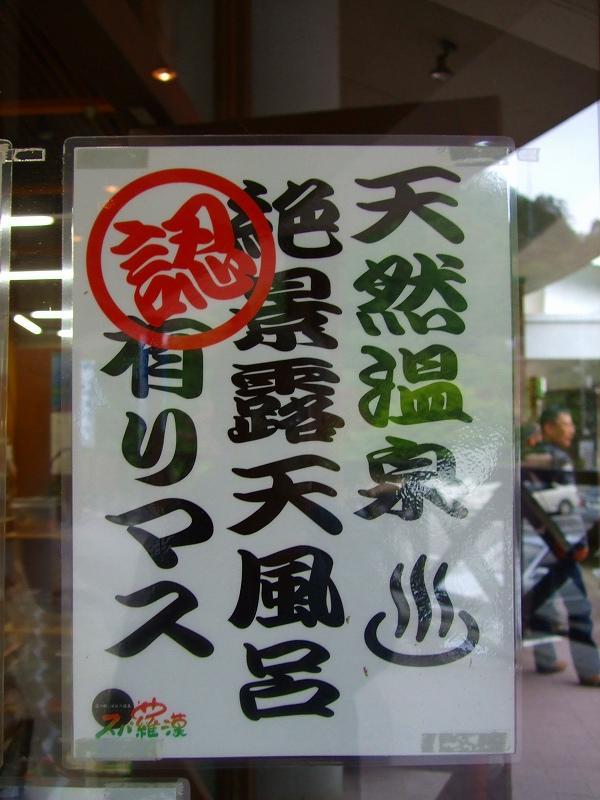 天然温泉♨
絶景露天風呂
認
有りマス
スパ羅漢